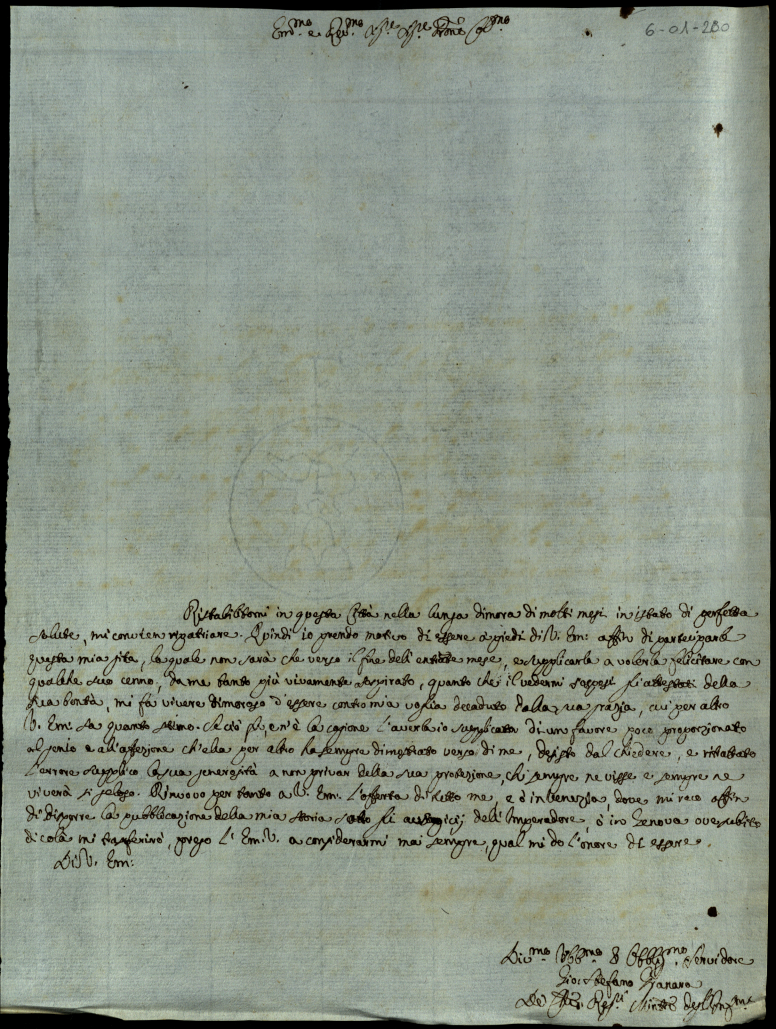 6-01-200
Em.mo e Rev.mo Sig.re Sig.re Prone Col.mo
Ristabilitomi in questa Città nella lunga dimora di molti mesi in istato di perfetta
salute, mi convien ripatriare. Quindi io prendo motivo di essere a piedi di V. Em: affin di parteciparle
questa mia gita, la quale non sarà che verso il fine dell'entrante mese, e supplicarla a volerla felicitare con
qualche suo cenno, da me tanto più vivamente sospirato, quanto che il vedermi sospesi gli attestati della
sua bontà, mi fà vivere timoroso d'essere contro mia voglia decaduto dalla sua grazia, cui per altro
V. Em: sa quanto stimo. Se ciò fù, e n'è la cagione l'averla io supplicata di un favore poco proporzionato
al genio e all'affezione ch'ella per altro ha sempre dimostrato verso di me, desisto dal chiedere, e rittrattato
l'errore supplico la sua generosità a non privar della sua protezione, chi sempre ne visse e sempre ne
viverà sì geloso. Rinuovo per tanto a V. Em: l'offerta di tutto me, e ò in Venezia, dove mi reco affin
di disporre la pubblicazione della mia storia sotto gli auspicij dell'Imperadore, ò in Genova ove subito
di colà mi trasferirò, prego l'Em. V. a considerarmi mai sempre, qual mi do l'onore di essere.
Di V. Em:
Div.mo Obb.mo & Obblig.mo Servidore
Gio: Stefano
De' Reg.